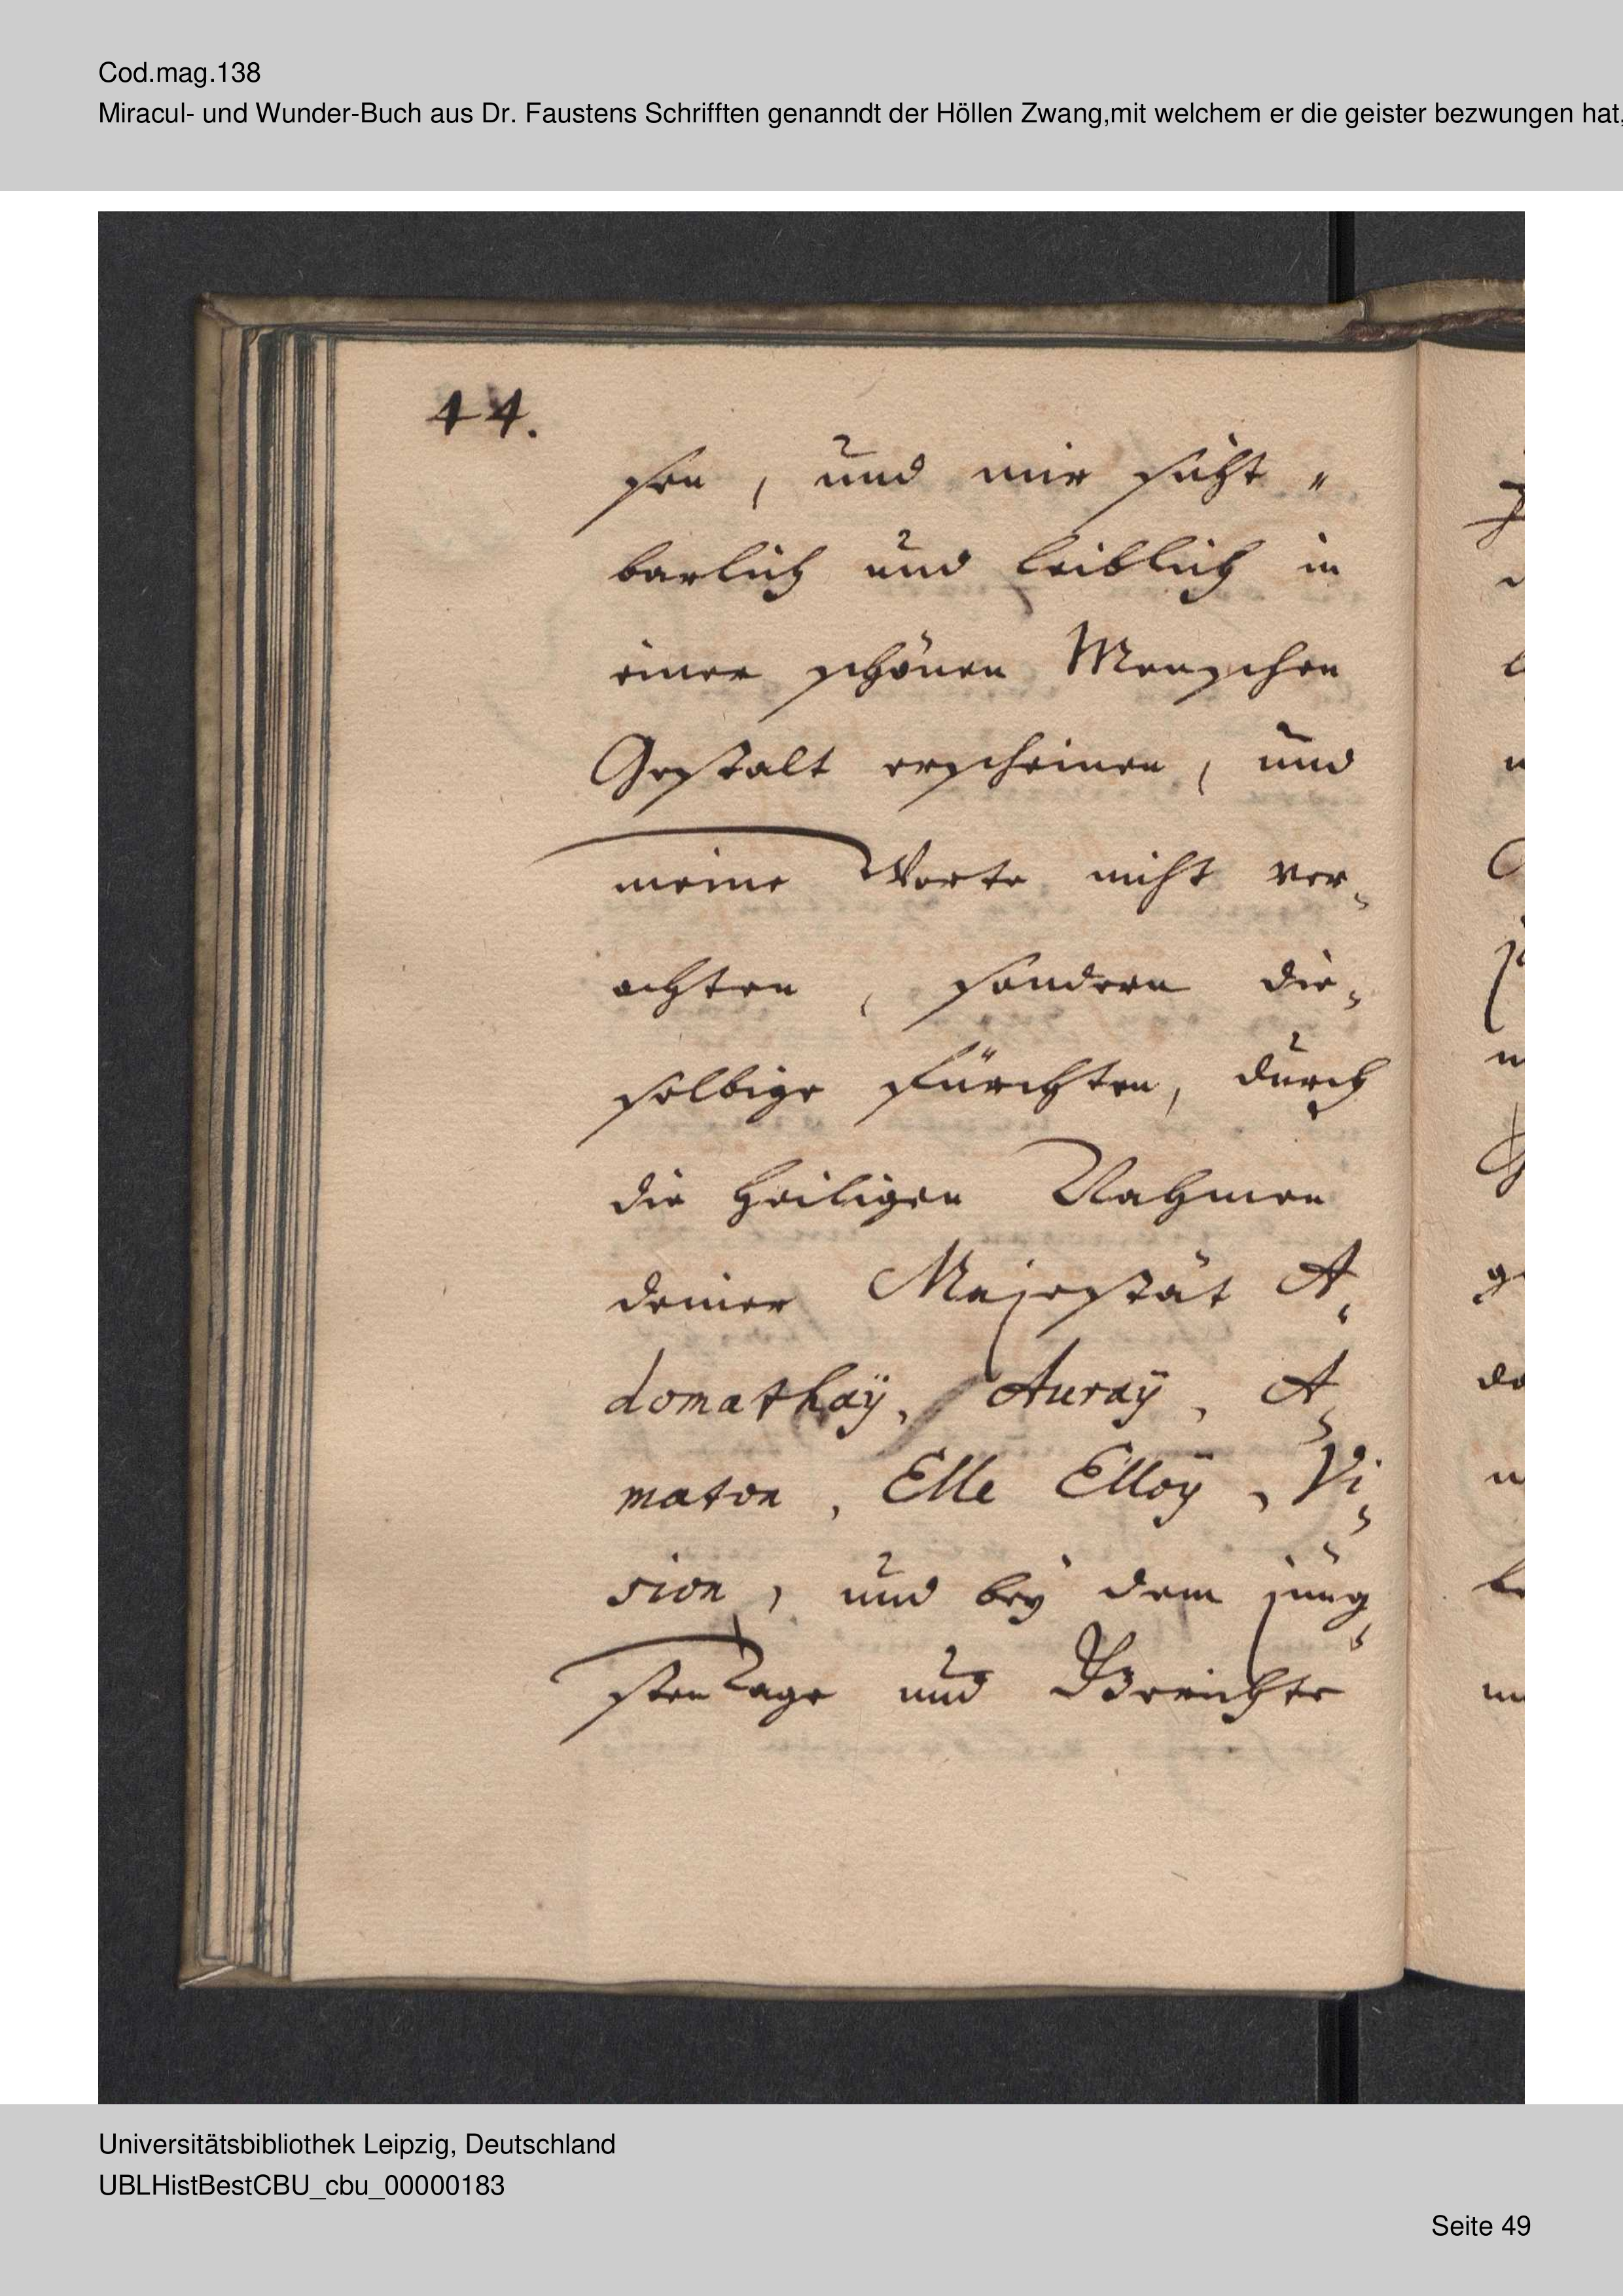 Cod.mag.138
Miracul- und Wunder-Buch aus Dr. Faustens Schrifften genanndt der Höllen Zwang,mit welchem er die geister bezwungen hat,
44.
sen, und mir sicht "
barlich und leiblich in
einer schönen Menschen
Gestalt erscheinen, und
meine Worte nicht ver=
achten, sondern die=
selbige fürchten, durch
die heiligen Nahmen
deiner Majestät A=
domathaÿ, Auraÿ, A=
maton, Elle Elloÿ, Vi=
sion, und beÿ dem jüng=
sten Tage und
Universitätsbibliothek Leipzig, Deutschland
UBLHistBestCBU_cbu_00000183
Seite 49